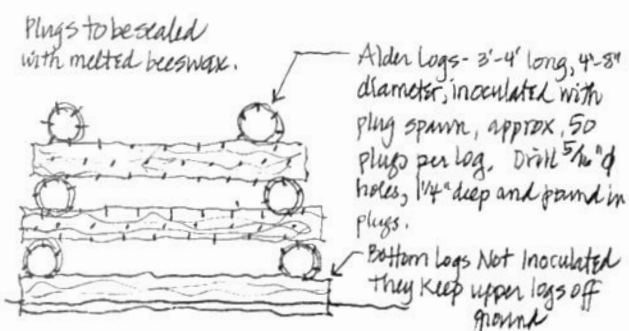 Plugs to be sealed
with melted beeswax.
Alder Logs - 3'-4' long, 4"-8"
diameter, inoculated with
plug spawn, approx. 50
plugs per log. Drill 5/16"ϕ
holes, 1 1/4" deep and pound in
plugs.
Bottom Logs Not Inoculated
They Keep upper logs off
ground